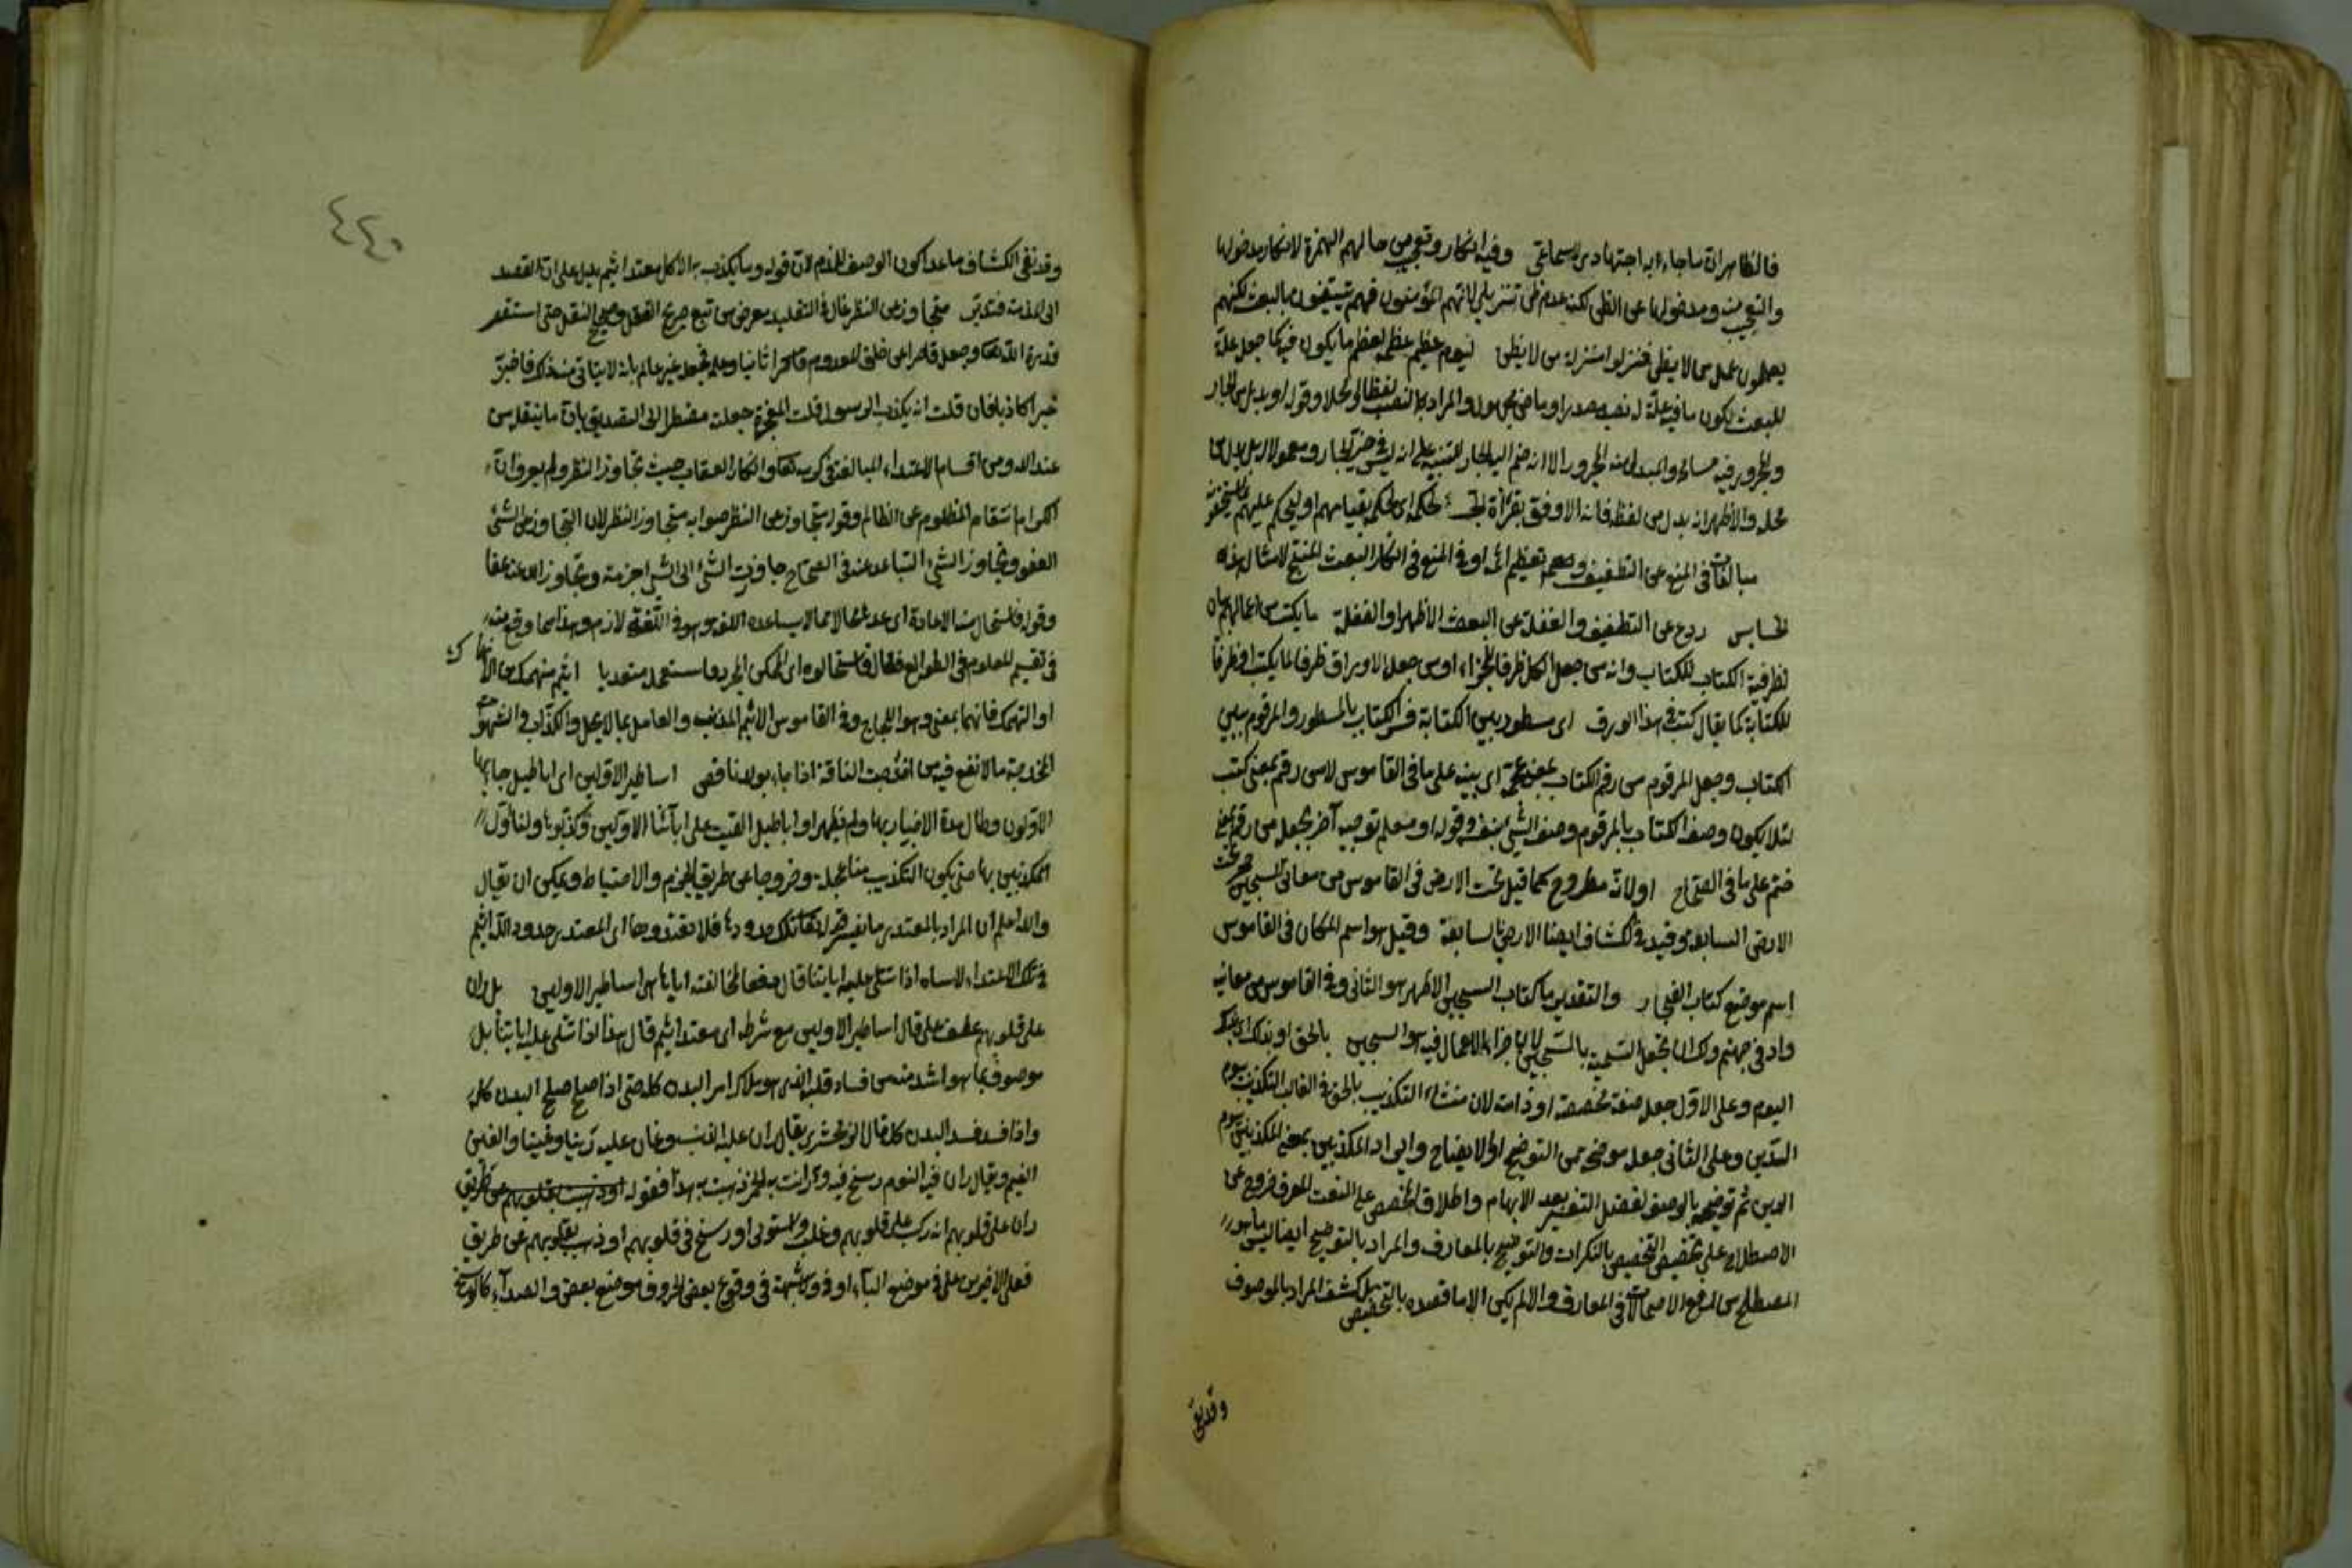 فالظاهر ان ما جاء به اجتهادى لاسماعى وفيه انكار وتعجيب من حالهم الهمزة لانكار مدخولها
والتعجيب منه ومدخولها عن الظن لكنه عدم ظن تنزيلى لانهم المؤمنون فهم يتيقنون بالبعث لكنهم
يعملون عمل من لا يظن فنزلوا منزلة من لا يظن ليوم عظيم عظمه لعظم ما يكون فيه كما جعل علة
للبعث لكون ما فيه علة له نصبه مصدرا وماض مجهول والمراد بالنصب لفظا او محلا وقوله او بدل من الجار
والمجرور فيه مسامحة والمبدل منه المجرور الا انه ضم اليه الجار للتنبيه على انه ليس فى حيز الجار ومعمولا له بل بدل من
محله والاظهر انه بدل من لفظه فانه الاوفق بقراءة الجر لحكمه اى لحكمه بقيامهم او ليحكم عليهم
مبالغات فى المنع عن التطفيف وتعظيم اثمه او فى المنع فى انكار البعث المنتج لامثال هذه
الخسايس ردع عن التطفيف والغفلة عن البعث الاظهر او الغفلة ما يكتب من اعمالهم بيان
لظرفية الكتاب للكتاب وانه من جعل الكل ظرفا للجزء او من جعل الاوراق ظرفا لما يكتب او ظرفا
للكتابة كما يقال كتب فى هذا الورق اى مسطور بين الكتابة فسر الكتاب بالمسطور والمرقوم ببين
الكتاب وجعل المرقوم من رقم الكتاب بمعنى اعجمه اى بينه على ما فى القاموس لا من رقم بمعنى كتب
لئلا يكون وصف الكتاب بالمرقوم وصف الشئ بنفسه وقوله او معلم توجيه آخر بجعله من رقم بمعنى
ختم على ما فى الصحاح اولانه مطروح كما قيل تحت الارض فى القاموس من معانى السجين
الارض السابعة وقيده فى الكشاف ايضا الارض السابعة وقيل هو اسم المكان فى القاموس
اسم موضع كتاب الفجار والتقدير ما كتاب السجين الاظهر هو الثانى وفى القاموس من معانيه
واد فى جهنم ولك ان تجعل التسمية بالسجين لان جزاء الاعمال فيه هو السجين بالحق او بذلك
اليوم وعلى الاول جعله صفة مخصصة او ذامة لان منشاء التكذيب بالحق فى الغالب التكذيب بيوم
الدين وعلى الثانى جعله موضحة من التوضيح او الايضاح وايراد المكذبين بمعنى المكذبين بيوم
الدين ثم توضيحه بالوصف لفضل التفسير بعد الابهام واطلاق المخصص على النعت المعرف خروج عن
الاصطلاح على تخصيص التخصيص بالنكرات والتوضيح بالمعارف والمراد بالتوضيح ايضا ليس ما هو
المصطلح من رفع الاحتمالات فى المعارف والا لم يكن الا ما قصده بالتخصيص بل كشف المراد بالموصوف
وقد نفى
٤٤٠
وقد نفى الكشاف ما عدا كون الوصف للذم لان قوله وما يكذب به الا كل معتد اثيم يدل على ان القصد
الى المذمة فتدبر متجاوز عن النظر غال فى التقليد معرض من تتبع صريح العقل وصحيح النقل حتى استقصر
قدرة الله تعالى وجعله قاصرا عن خلق المعدوم ثانيا وعلمه فجعله غير عالم بانه لا يتاتى منه ذلك فاخبر
خبرا كاذبا فان قلت انه يكذب الرسول قلت المعجزة جعلته مضطرا الى التصديق بان ما ينقله من
عند الله ومن اقسام الاعتداء المبالغة فى كرمه تعالى وانكار العقاب حيث تجاوز النظر ولم يعرف ان
الكرام انتقام المظلوم عن الظالم وقوله متجاوز عن النظر صوابه متجاوز النظر لان التجاوز عن الشئ
العفو وتجاوز الشئ التباعد عنه فى الصحاح جاوزت الشئ الى الشئ اجزته وتجاوز الله عنه عفا
وقوله فاستحال منه الاعادة اى عده محالا مما لا يساعده اللغة وهو فى اللغة لازم وهذا مما وقع منه
فى تقسيم المعلوم فى الطوالع فقال فاستحالوه اى الممكن المجرد فاستعمله متعديا اثيم منهمك من الانهماك
او التهمك فانهما بمعنى وهو اللجاج وفى القاموس الاثيم المذنب والعامل بما لا يحل والكذاب والشهوات
المخدجة ما لا نفع فيه من اخدجت الناقة اذا جاءت بولد ناقص اساطير الاولين اى اباطيل جاء بها
الاولون وطال مدة الاخبار بها ولم يظهر او اباطيل القيت على ابائنا الاولين وكذبوها ولسنا اول
المكذبين بها حتى يكون التكذيب منا عجلة وخروجا عن طريق الحزم والاحتياط ويمكن ان يقال
والله اعلم ان المراد بالمعتدى ما يفسره قوله تعالى تلك حدود الله فلا تعتدوها اى المعتدى حدود الله اثيم
فى تلك الاعتداء لاسناه اذا تتلى عليه اياتنا قال دفعا لمخالفته اياها اساطير الاولين بل ران
على قلوبهم عطف على قال اساطير الاولين مع شرطه اى معتد اثيم قال هذا اذا تتلى عليه اياتنا بل
موصوف بما هو اشد منه من فساد قلبه الذى هو ملاك امر البدن كله حتى اذا صلح صلح البدن كله
واذا فسد فسد البدن كله قال الزمخشرى يقال ران عليه الذنب وغان عليه رينا وغينا والغين
الغيم ويقال ران فيه النوم رسخ فيه ورانت به الخمر ذهبت به هذا فقوله
ران على قلوبهم انه ركب على قلوبهم وغلب واستولى او رسخ فى قلوبهم او ذهب بقلوبهم عن طريق
فعلى الاخيرين على فى موضع الباء او فى ولا شبهة فى وقوع بعض الحروف موضع بعض والصداء كالوسخ